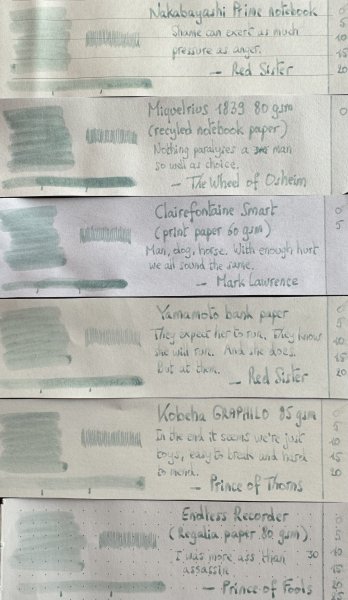 Nakabayashi Prime notebook
Shame can exert as much
pressure as anger.
— Red Sister
0
5
10
15
20
Miquelrius 1839 80 gsm
(recycled notebook paper)
Nothing paralyses a man
so well as choice.
— The Wheel of Osheim
0
Clairefontaine Smart
(print paper 60 gsm)
Man, dog, horse. With enough hurt
we all sound the same.
— Mark Lawrence
0
5
Yamamoto bank paper
They expect her to run. They know
she will run. And she does.
But at them.
— Red Sister
0
5
10
15
20
Kobeha GRAPHILO 85 gsm
In the end it seems we're just
toys, easy to break and hard
to mend.
— Prince of Thorns
0
5
10
15
20
Endless Recorder
(Regalia paper 80 gsm)
I was more ass than
assassin
— Prince of Fools
30
0
5
10
15